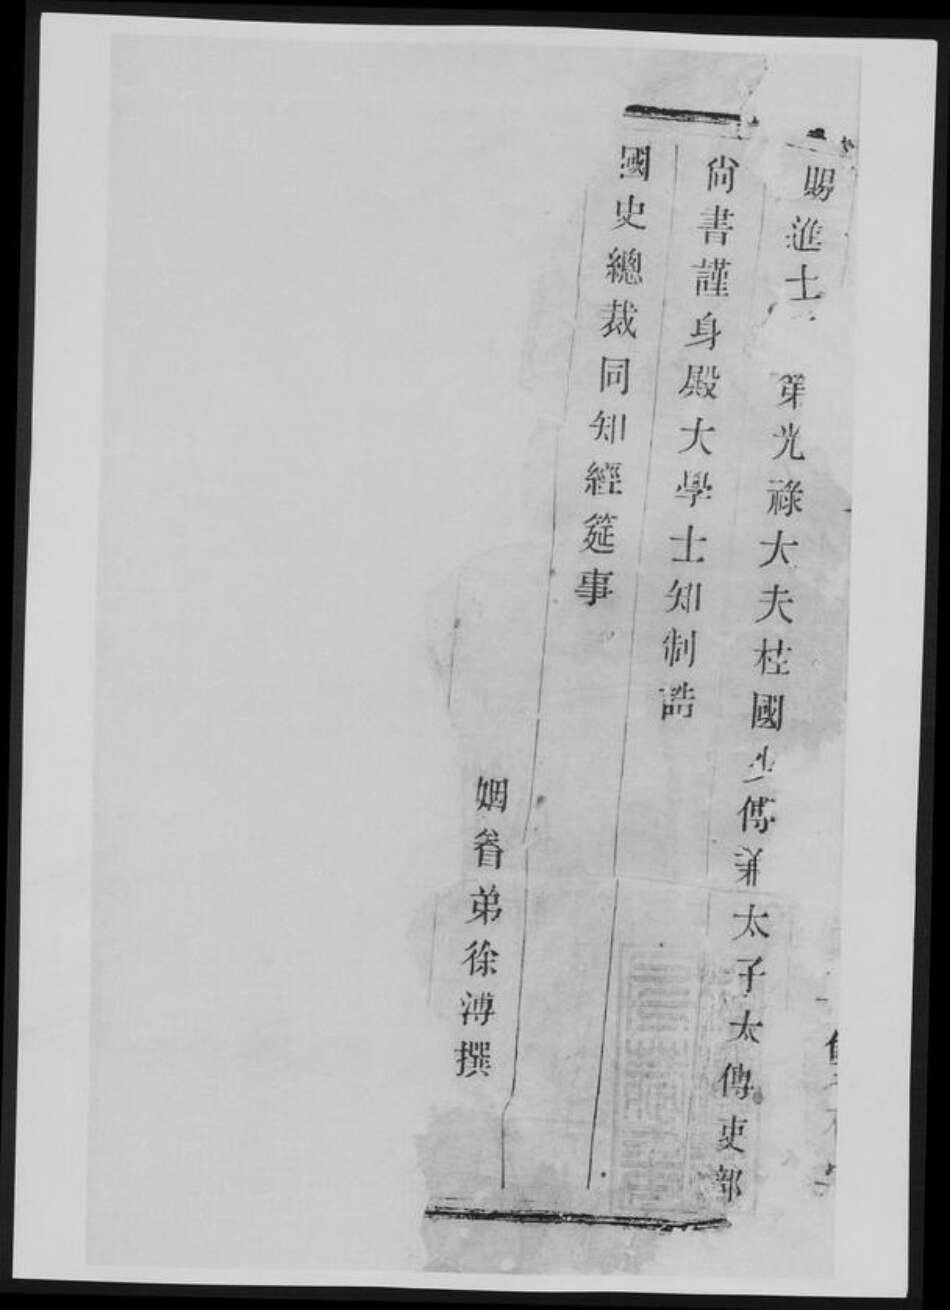 賜進士第光祿大夫柱國少傅兼太子太傅吏部
尚書謹身殿大學士知制誥
國史總裁同知經筵事
姻眷弟徐溥撰